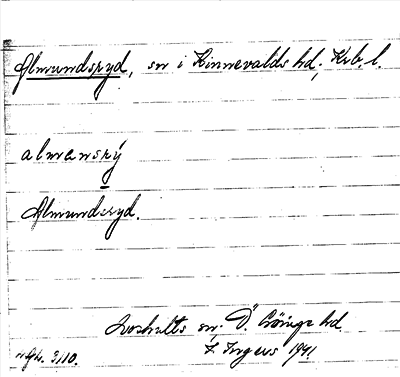 Almundsryd, sn i Kinnevalds hd, Krb. l.
almansrý
Almundsryd.
Loshults sn, Ö. Göinge hd.
3/10. I. Ingers 1941